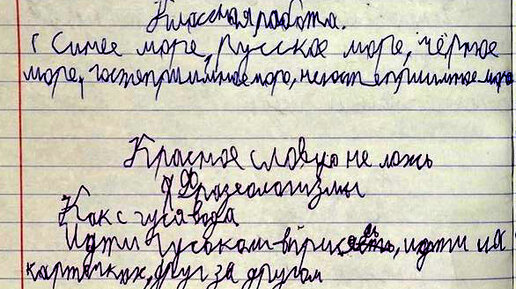 Классная работа.
Синее море, Русское море, чёрное
море, гостеприимное море, негостеприимное море
Красное словцо не ложь
Фразеологизмы
Как с гуся вода
Идти гуськом - вприсядь, идти на
карточках, друг за другом